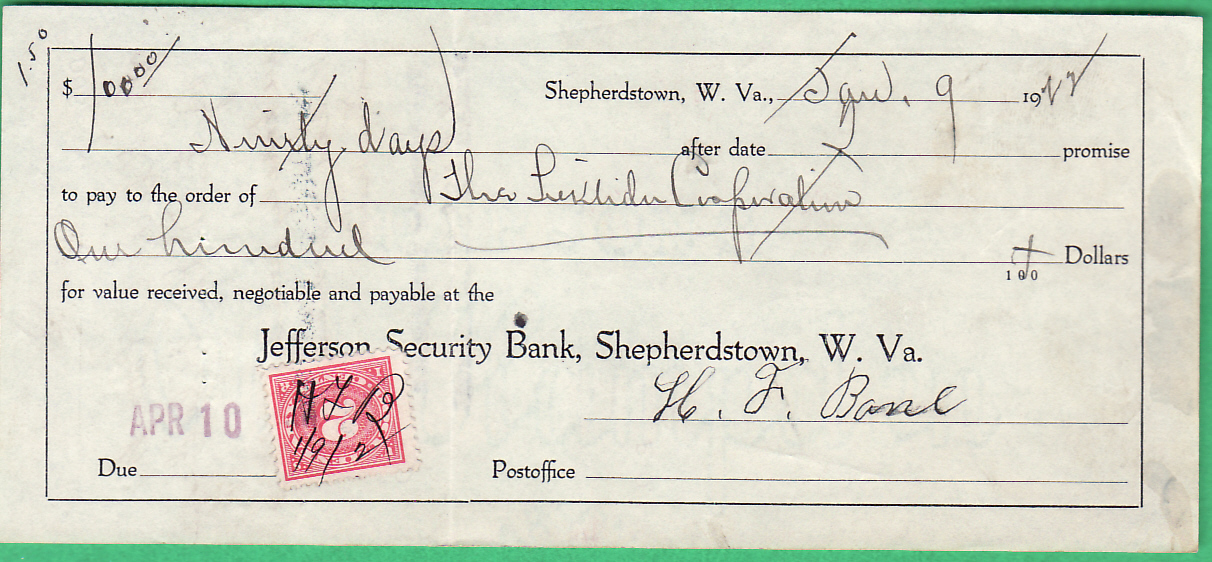 1.50
$ 100 00 Shepherdstown, W. Va., Jan. 9 1922
Ninety days after date I promise
to pay to the order of The Corporation
One hundred 100 Dollars
for value received, negotiable and payable at the
Jefferson Security Bank, Shepherdstown, W. Va.
H. F.
APR 10
HFB
1/9/22
2
Due Postoffice